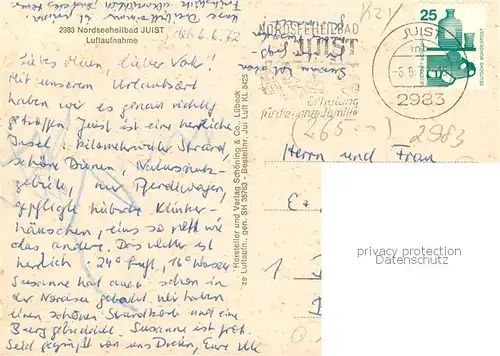 2983 Nordseeheilbad JUIST
Luftaufnahme
den 6.6.72
Liebe liebe Vati!
Mit unserem Urlaubsort
haben wir es genau richtig
getroffen. Juist ist eine herrliche
Insel, kilometerweiter Strand,
schöne Dünen, Naturschutz-
gebiete, nur Pferdewagen,
gepflegte hübsche Klinker-
häuschen, eins so nett wie
das andere. Das Wetter ist
herrlich. 24° Luft, 16° Wasser
Susanne hat auch schon in
der Nordsee gebadet. Wir haben
einen schönen Strandkorb und eine
Burg gebuddelt. Susanne ist froh.
Seid gegrüßt von uns Dreien, Eure
Hersteller und Verlag Schöning & Co., Lübeck
ze Luftaufn., gen. SH 35763 - Bestellnr. Jui Luft KL 5425
NORDSEEHEILBAD
JUIST
Erholung
für die ganze Familie
JUIST
2983
25
DEUTSCHE BUNDESPOST
2983
Herrn und Frau
privacy protection
Datenschutz